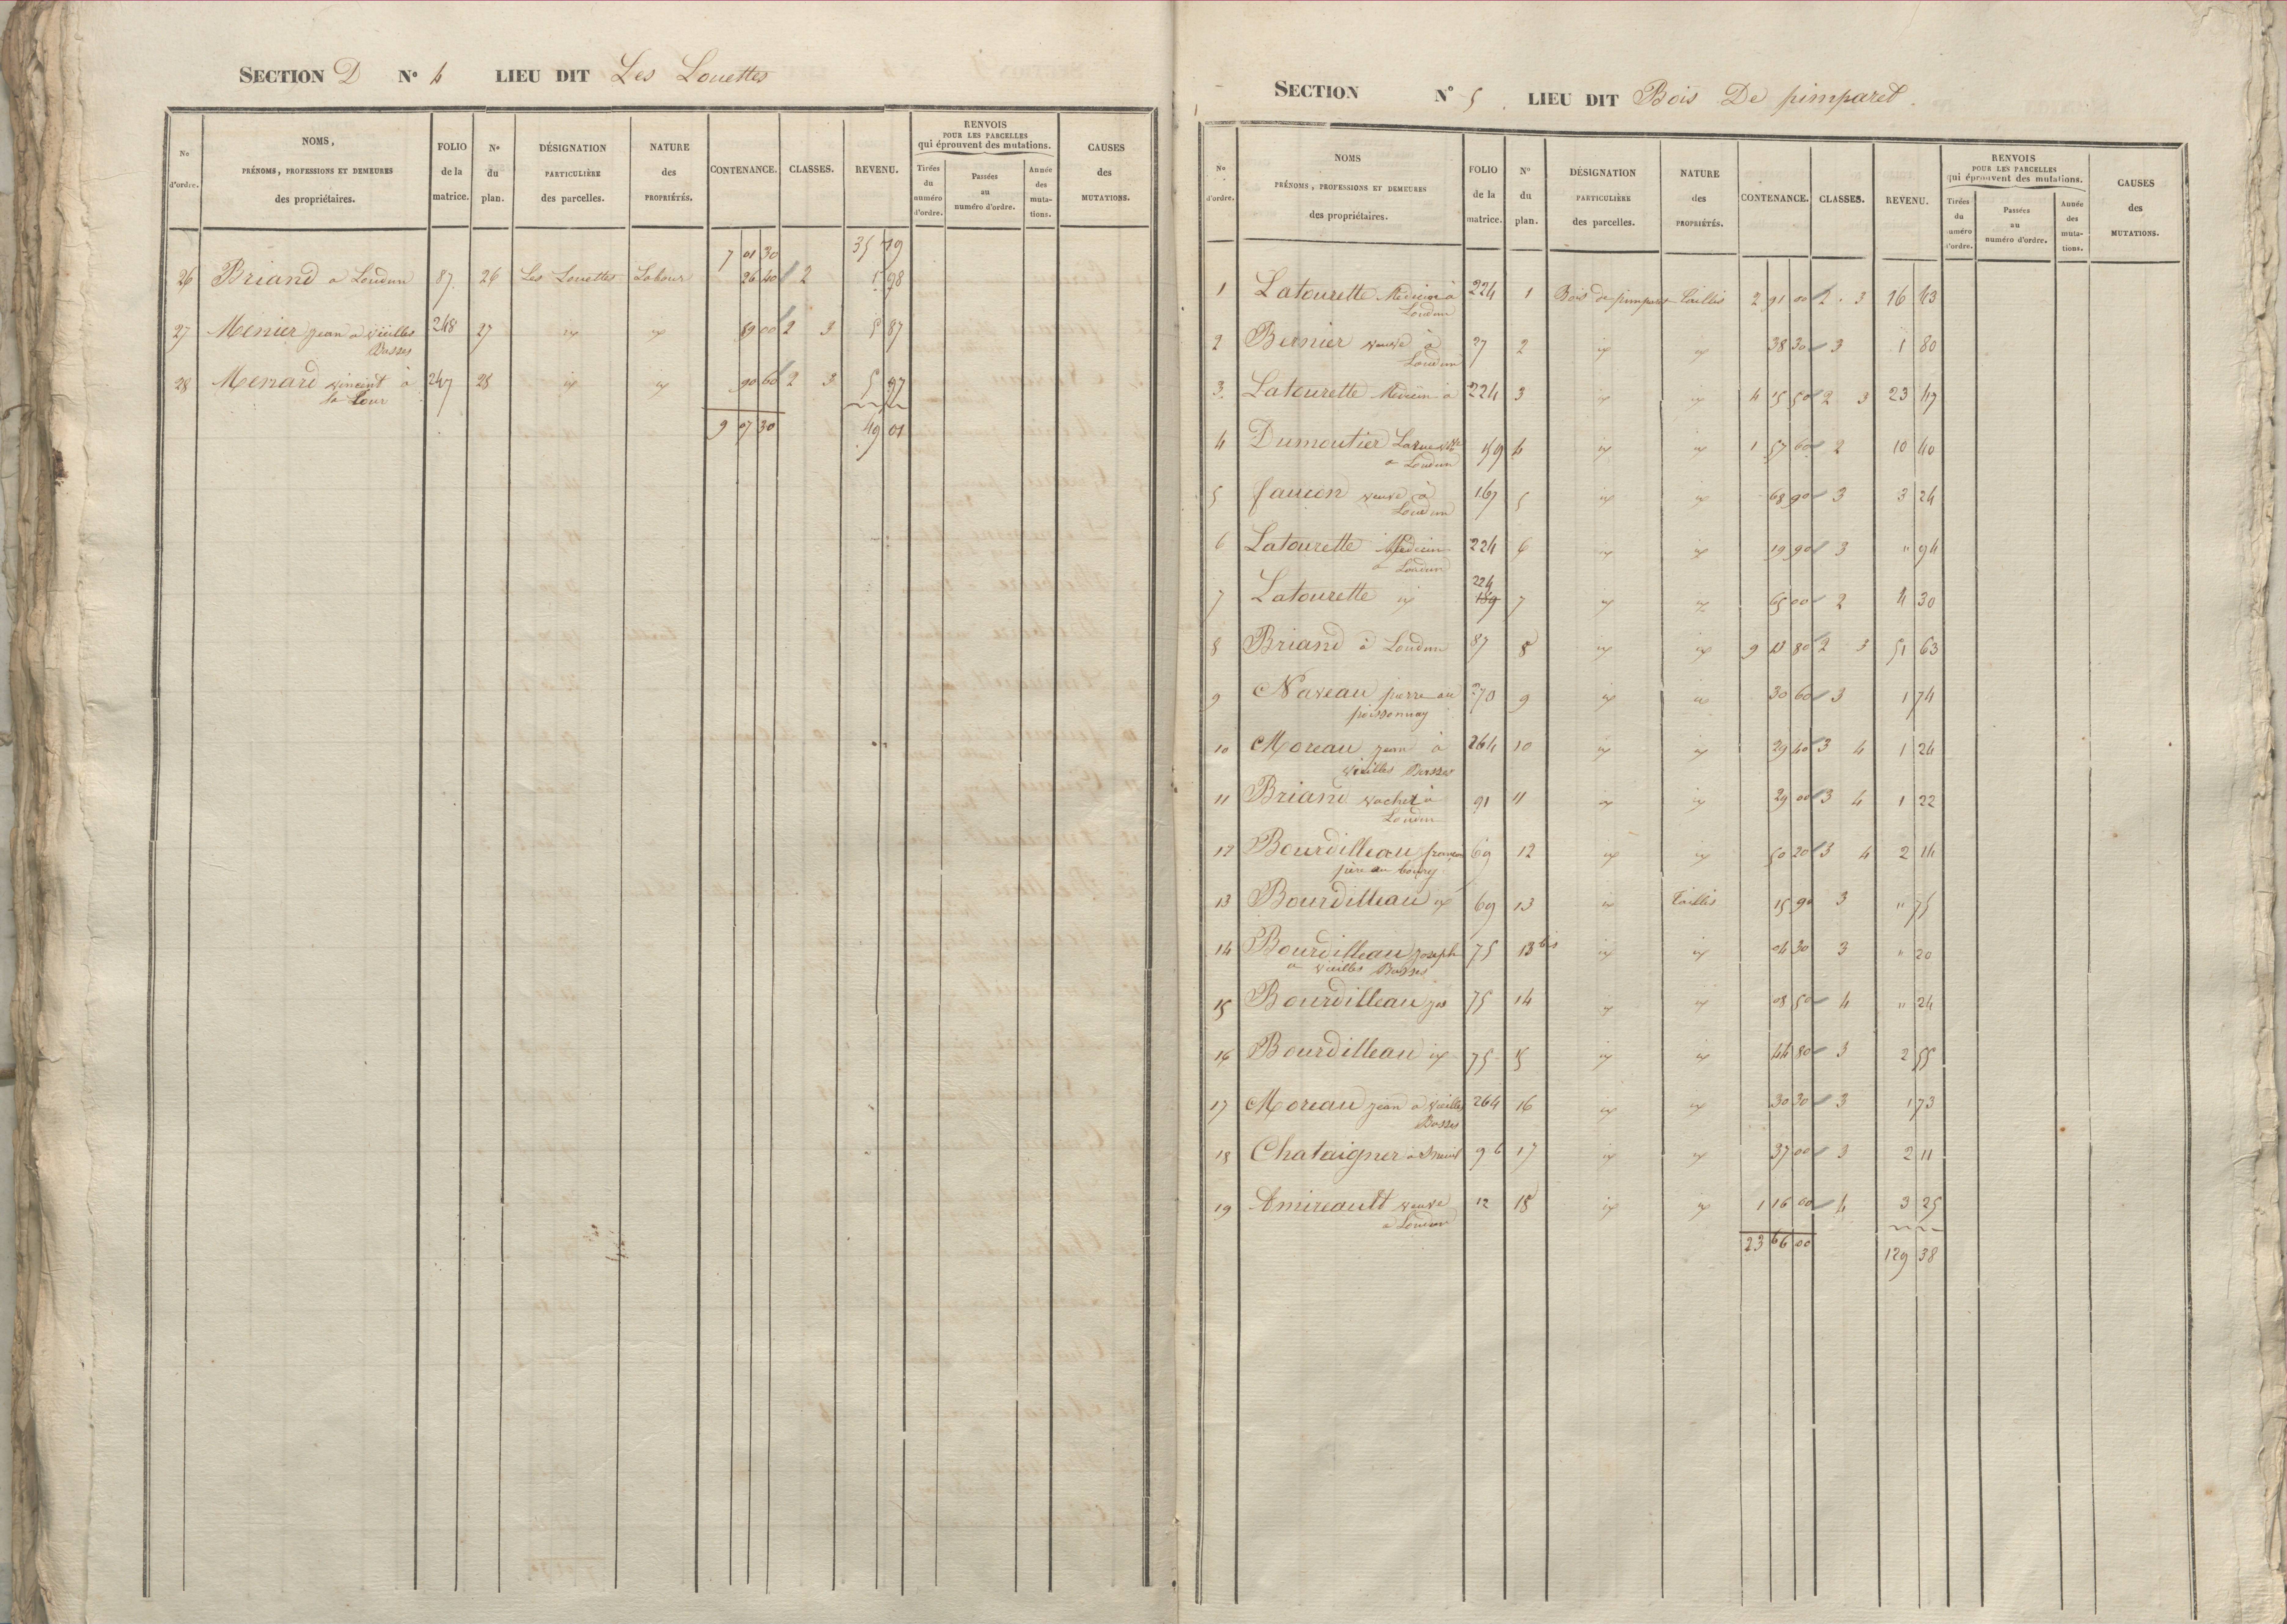 SECTION D N° 4 LIEU DIT Les Louettes
N° d'ordre. NOMS, PRÉNOMS, PROFESSIONS ET DEMEURES des propriétaires. FOLIO de la matrice. N° du plan. DÉSIGNATION PARTICULIÈRE des parcelles. NATURE des PROPRIÉTÉS. CONTENANCE. CLASSES. REVENU. RENVOIS POUR LES PARCELLES qui éprouvent des mutations. Tirées du numéro d'ordre. Passées au numéro d'ordre. Année des mutations. CAUSES des MUTATIONS.
7 01 30 35 19
26 Briand a Loudun 87 26 Les Louettes Labour 26 40 2 1 98
27 Menier jean a vieilles 248 27 id id 89 00 2 3 5 87
Basses
28 Menard vincent à 247 28 id id 90 60 2 3 5 97
la Cour
9 07 30 49 01
SECTION N° 5 LIEU DIT Bois De pimparet
N° d'ordre. NOMS PRÉNOMS, PROFESSIONS ET DEMEURES des propriétaires. FOLIO de la matrice. N° du plan. DÉSIGNATION PARTICULIÈRE des parcelles. NATURE des PROPRIÉTÉS. CONTENANCE. CLASSES. REVENU. RENVOIS POUR LES PARCELLES qui éprouvent des mutations. Tirées du numéro d'ordre. Passées au numéro d'ordre. Année des mutations. CAUSES des MUTATIONS.
1 Latourette Medecin à 224 1 Bois de pimparet Taillis 2 91 00 2 3 16 43
Loudun
2 Bernier veuve à 27 2 id id 38 30 3 1 80
Loudun
3 Latourette Medecin à 224 3 id id 4 15 50 2 3 23 47
4 Dumoutier Larue 159 4 id id 1 57 60 2 10 40
a Loudun
5 faucon veuve à 167 5 id id 68 90 3 3 24
Loudun
6 Latourette Medecin 224 6 id id 19 90 3 " 94
a Loudun
224
7 Latourette id 159 7 id id 65 00 2 4 30
8 Briand à Loudun 87 8 id id 9 13 80 2 3 51 63
9 Naveau pierre au 270 9 id id 30 60 3 1 74
poissonnay
10 Moreau jean à 264 10 id id 29 40 3 4 1 24
vieilles Basses
11 Briand vachet à 91 11 id id 29 00 3 4 1 22
Loudun
12 Bourdilleau françois 69 12 id id 50 20 3 4 2 14
père au bourg
13 Bourdilleau id 69 13 id Taillis 15 90 3 " 75
14 Bourdilleau joseph 75 13 bis id id 04 30 3 " 20
a vieilles Basses
15 Bourdilleau jos 75 14 id id 08 50 4 " 24
16 Bourdilleau id 75 15 id id 44 80 3 2 55
17 Moreau jean a vieilles 264 16 id id 30 30 3 1 73
Basses
18 Chataigner a 96 17 id id 37 00 3 2 11
19 Amireault veuve 12 18 id id 1 16 00 4 3 25
a Loudun
23 66 00 129 38